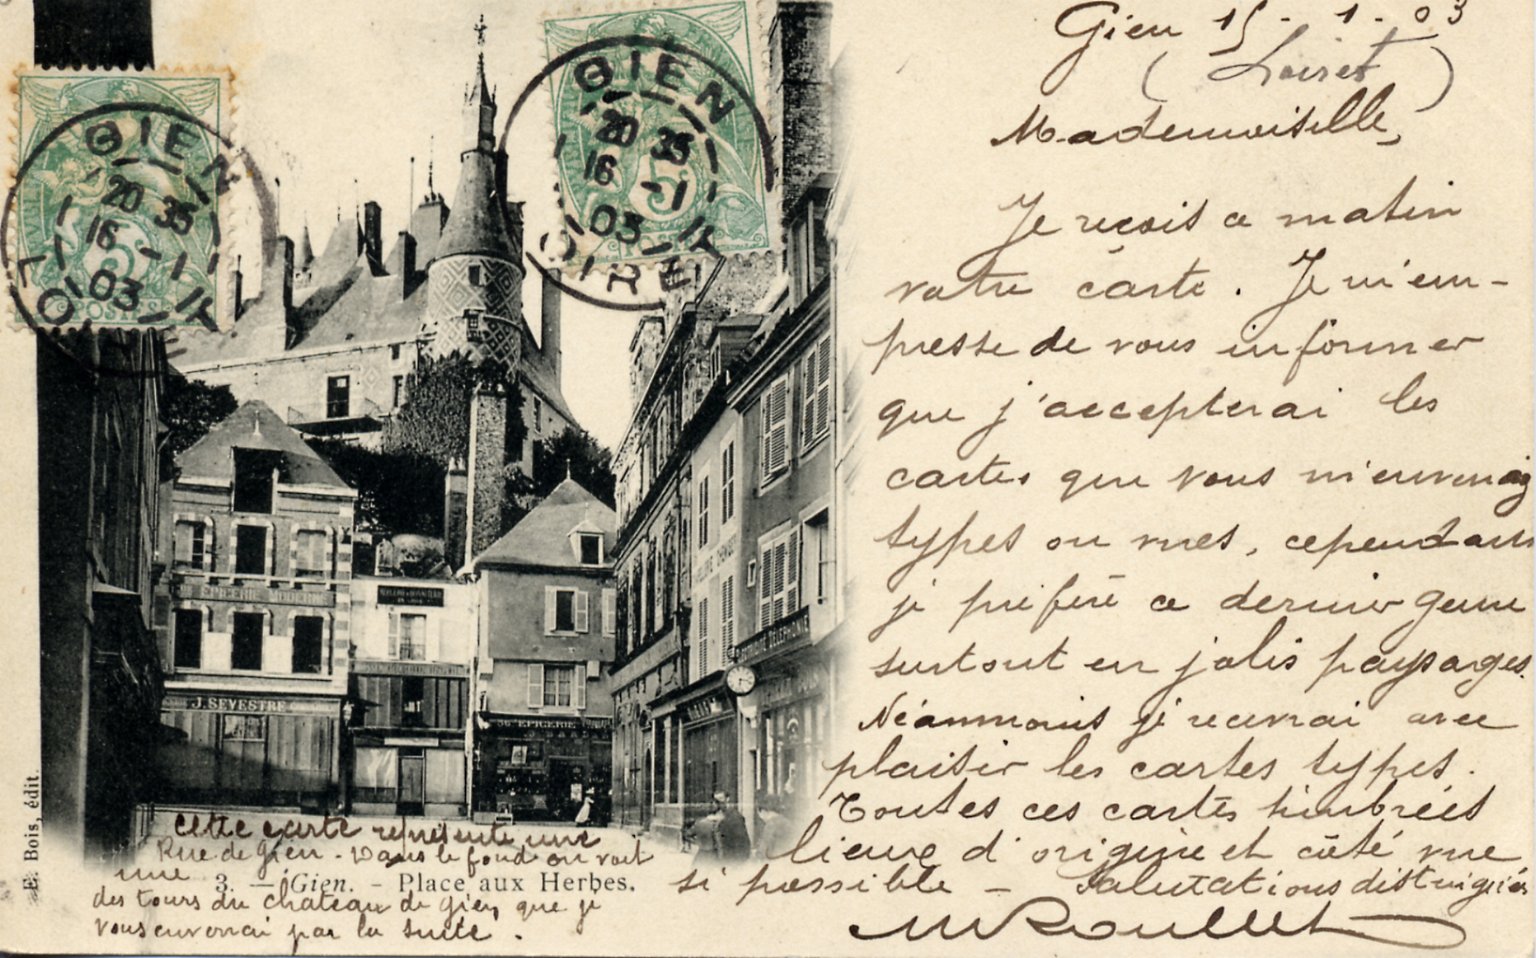 Gien 15-1-03
(Loiret)
Mademoiselle,
Je reçois ce matin
votre carte. Je m'em-
presse de vous informer
que j'accepterai les
cartes que vous m'enverrez
types ou vues, cependant
je préfère ce dernier genre
surtout en jolis paysages.
Néanmoins je recevrai avec
plaisir les cartes types.
Toutes ces cartes timbrées
lieux d'origine et côté vue
si possible - Salutations distinguées
MRoullet
GIEN
20 35
16 -1
03
LOIRET
5
POSTES
GIEN
20 35
16 -1
03
LOIRET
5
POSTES
EPICERIE MODERNE
J. SEVESTRE
EPICERIE
TELEPHONIE
cette carte représente une
Rue de Gien - Dans le fond on voit
une
des tours du château de Gien que je
vous enverrai par la suite.
3. - Gien. - Place aux Herbes.
E. Bois, édit.